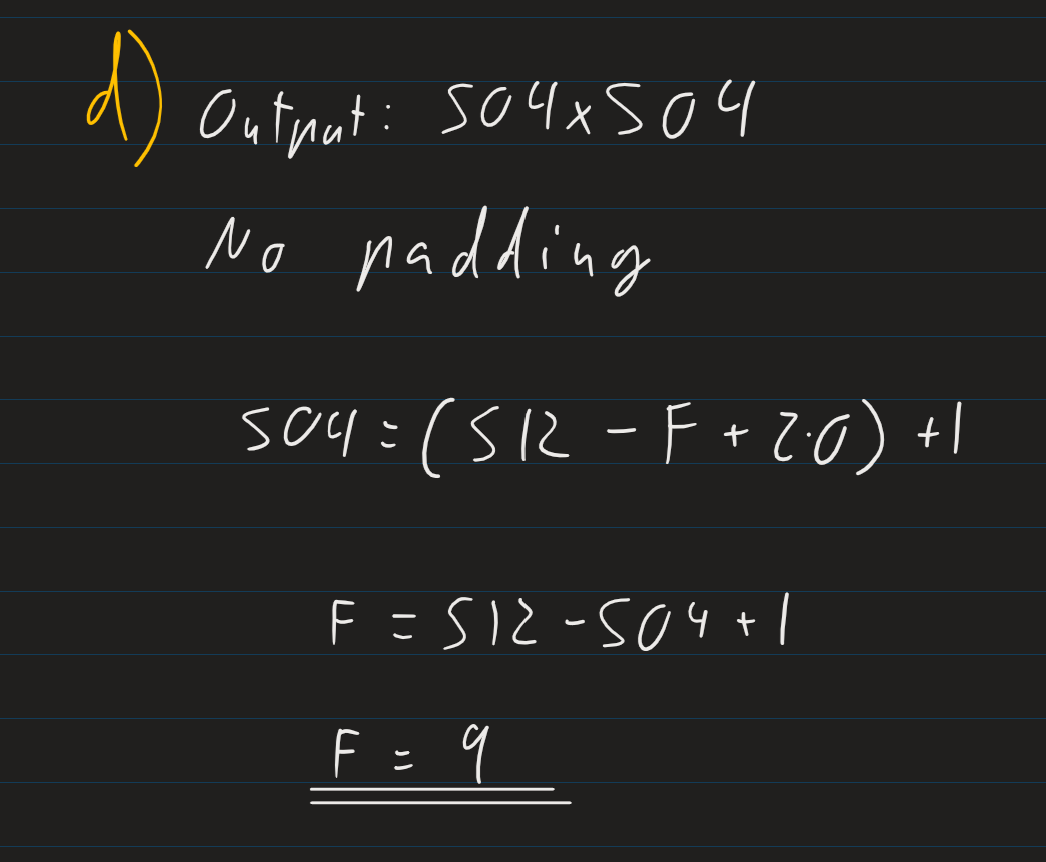 d) Output: 504x504
No padding
504=(512 - F + 2·0) +1
F = 512-504+1
F = 9